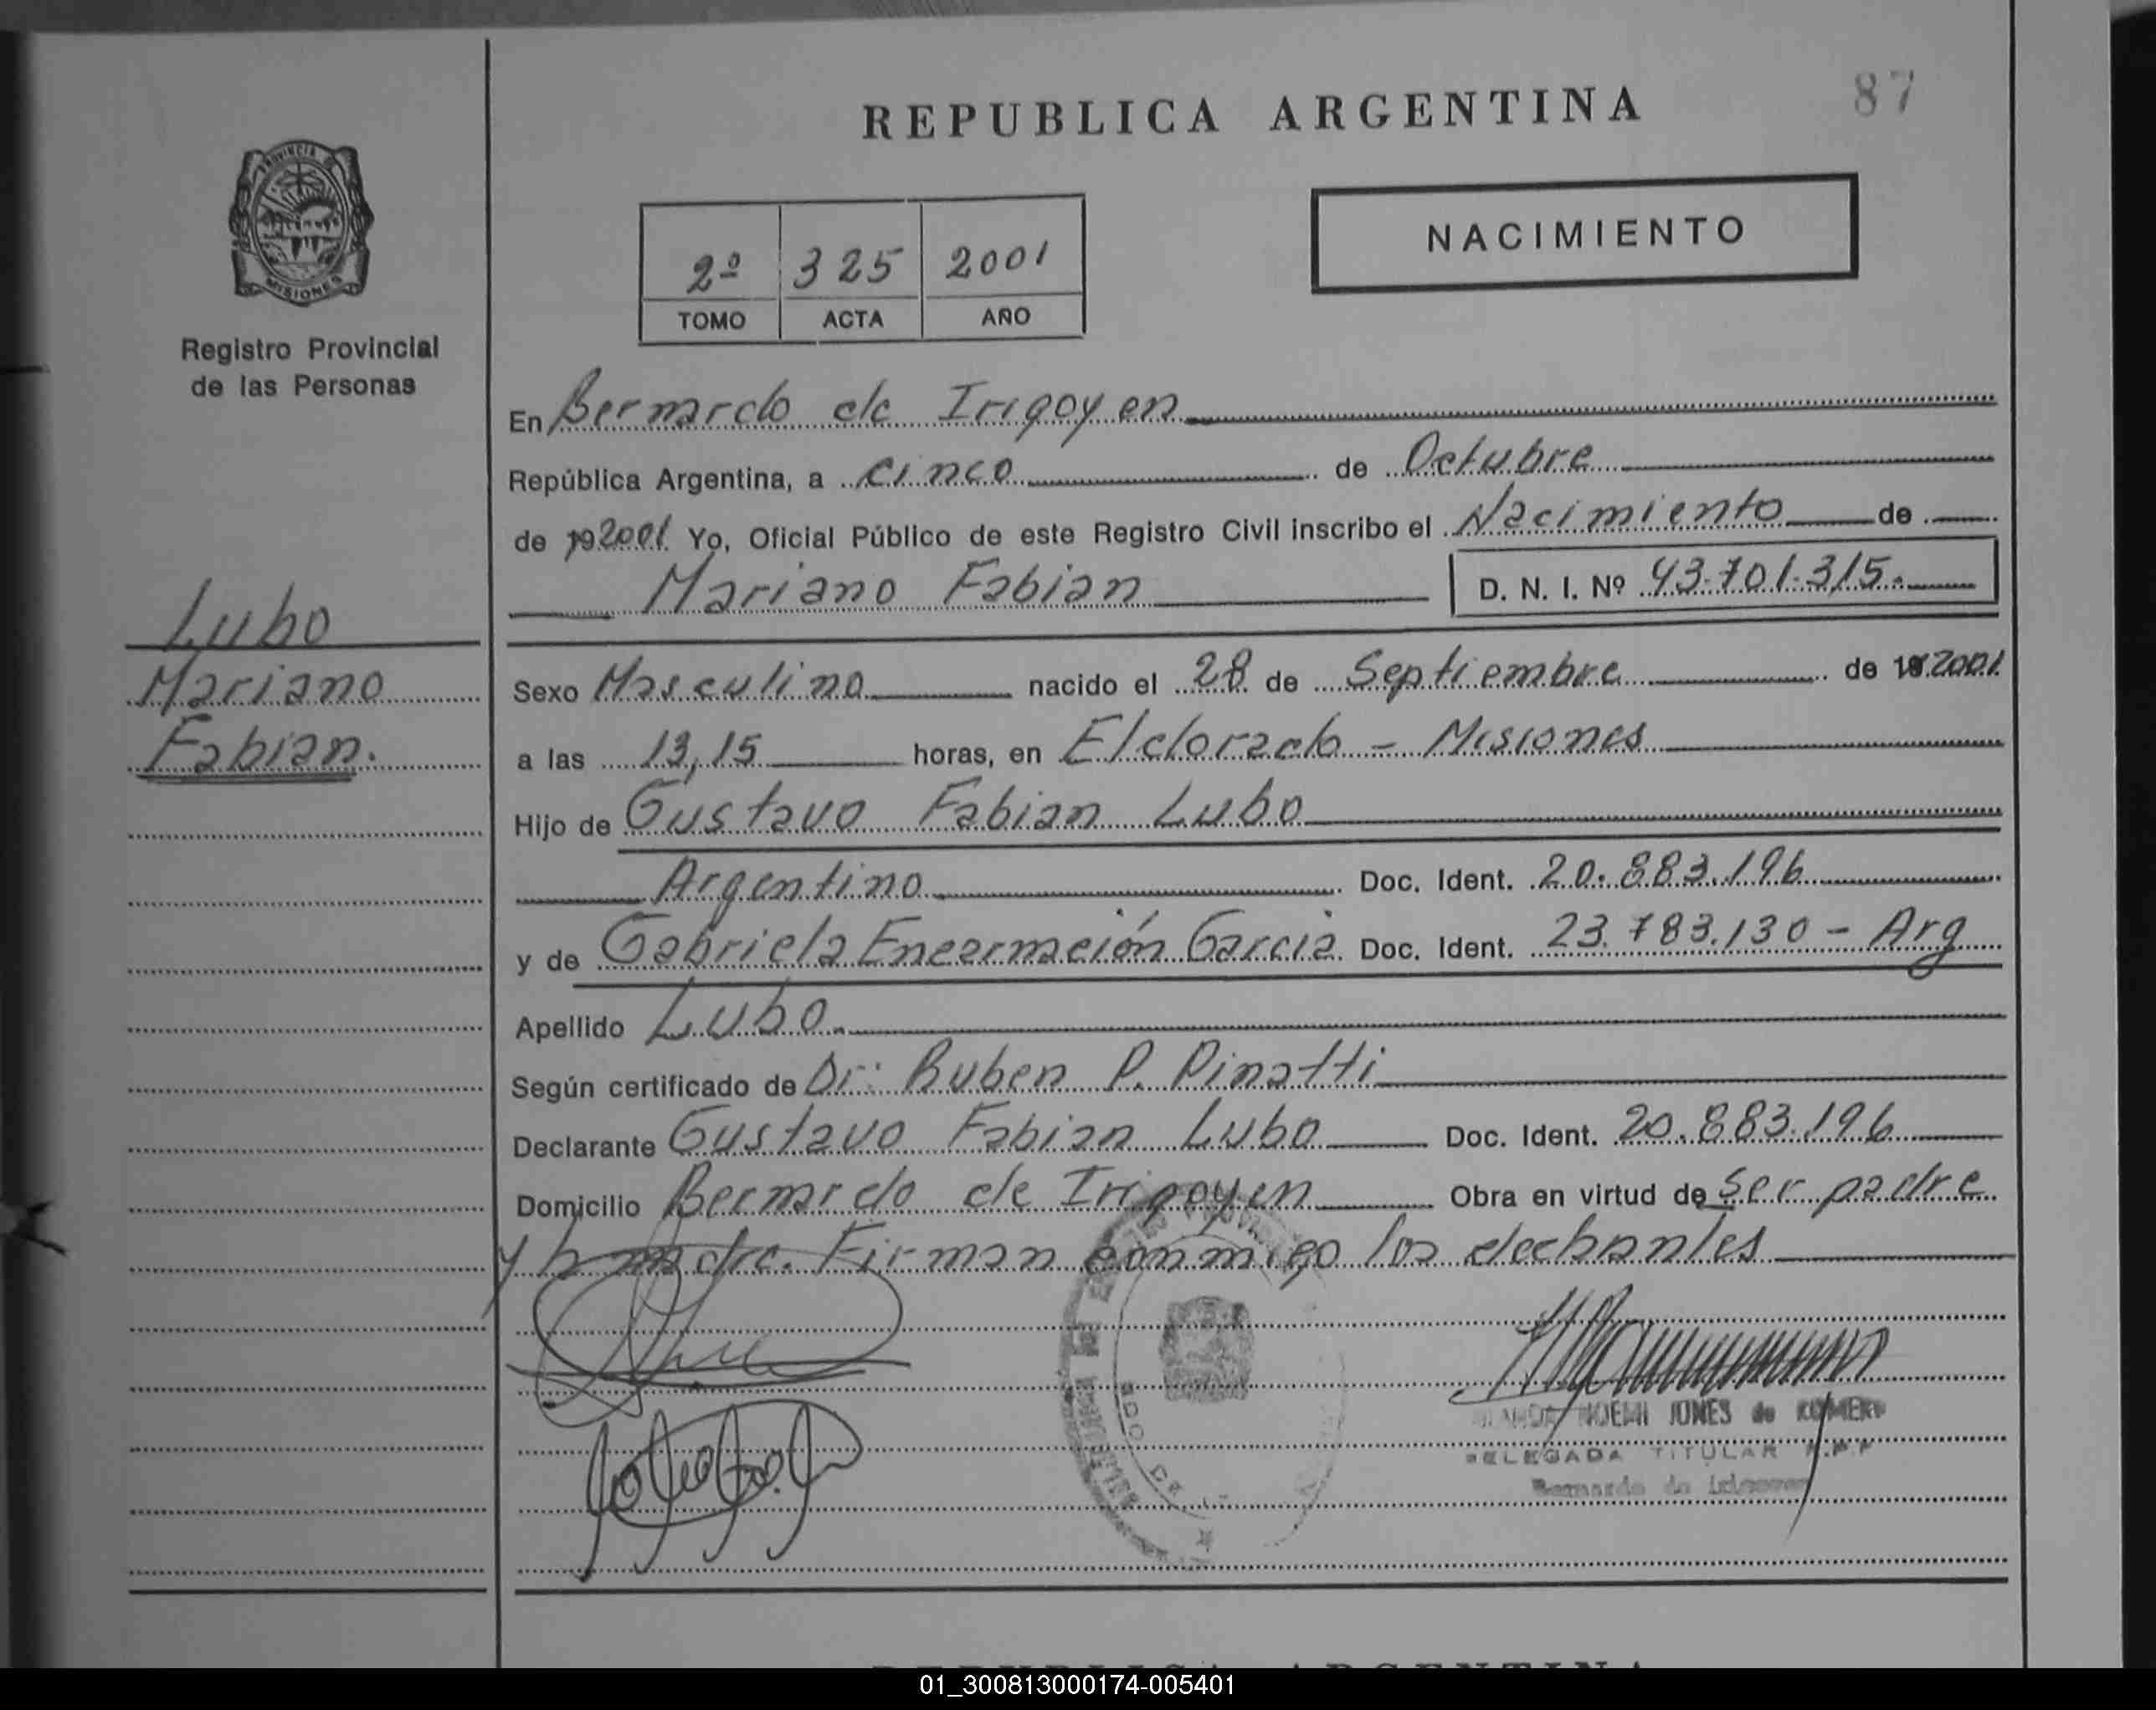 REPUBLICA ARGENTINA
87
PROVINCIA DE
MISIONES
Registro Provincial
de las Personas
2º 325 2001
TOMO ACTA AÑO
NACIMIENTO
En Bernardo de Irigoyen
República Argentina, a cinco de Octubre
de 192001 Yo, Oficial Público de este Registro Civil inscribo el Nacimiento de
Mariano Fabian D. N. I. Nº 43.701.315.
Lubo
Mariano
Fabian.
Sexo Masculino nacido el 28 de Septiembre de 192001
a las 13,15 horas, en Eldorado - Misiones
Hijo de Gustavo Fabian Lubo
Argentino Doc. Ident. 20.883.196
y de Gabriela Encarnación Garcia Doc. Ident. 23.783.130 - Arg
Apellido Lubo.
Según certificado de Dr: Ruben P. Pinatti
Declarante Gustavo Fabian Lubo Doc. Ident. 20.883.196
Domicilio Bernardo de Irigoyen Obra en virtud de ser padre
y la madre. Firman conmigo los
NOEMI JONES de
DELEGADA TITULAR
Bernardo de Irigoyen
REPUBLICA ARGENTINA
01_300813000174-005401